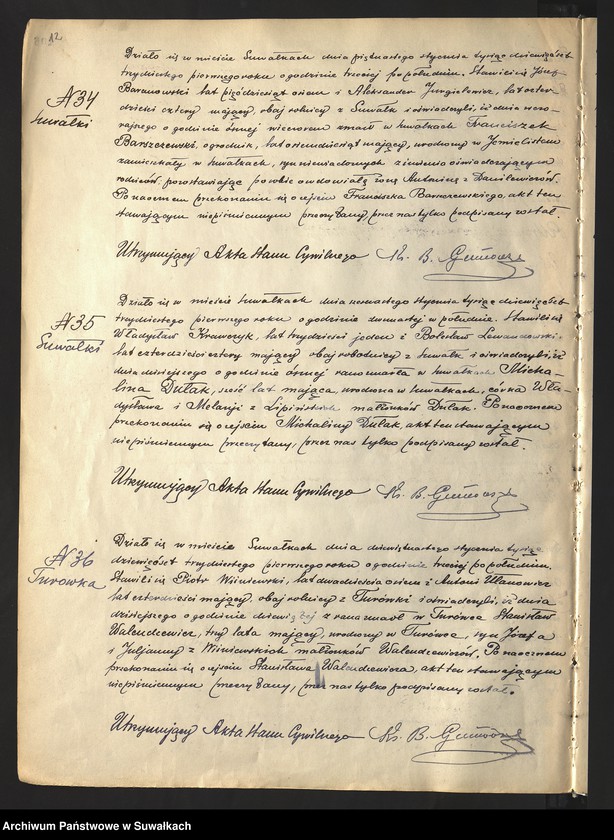 12
Działo się w mieście Suwałkach dnia piętnastego stycznia tysiąc dziewięćset
trzydziestego pierwszego roku o godzinie trzeciej po południu. Stawili się Józef
№ 34
Suwałki
Baranowski lat pięćdziesiąt osiem i Aleksander Jurgielewicz, lat czter-
dzieści cztery mający, obaj rolnicy z Suwałk i oświadczyli, iż dnia wczo-
rajszego o godzinie ósmej wieczorem zmarł w Suwałkach Franciszek
Barszczewski, ogrodnik, lat osiemdziesiąt mający, urodzony w
zamieszkały w Suwałkach, syn niewiadomych z imienia oświadczającym
rodziców, pozostawiając po sobie owdowiałą żonę Antoninę z Danilewiczów.
Po naocznem przekonaniu się o zejściu Franciszka Barszczewskiego, akt ten
stawającym niepiśmiennym przeczytany, przez nas tylko podpisany został.
Utrzymujący Akta Stanu Cywilnego Ks. B.
Działo się w mieście Suwałkach dnia szesnastego stycznia tysiąc dziewięćset
№ 35
Suwałki
trzydziestego pierwszego roku o godzinie dwunastej w południe. Stawili się
Władysław Krawczyk, lat trzydzieści jeden i Bolesław Lewandowski
lat czterdzieści cztery mający obaj robotnicy z Suwałk i oświadczyli, iż
dnia dzisiejszego o godzinie ósmej rano zmarła w Suwałkach Micha-
lina Dulak, sześć lat mająca, urodzona w Suwałkach, córka Wła-
dysława i Melanji z Lipińskich małżonków Dulak. Po naocznem
przekonaniu się o zejściu Michaliny Dulak, akt ten stawającym
niepiśmiennym przeczytany, przez nas tylko podpisany został.
Utrzymujący Akta Stanu Cywilnego Ks. B.
Działo się w mieście Suwałkach dnia dziewiętnastego stycznia tysiąc
№ 36
Turówka
dziewięćset trzydziestego pierwszego roku o godzinie trzeciej po południu.
Stawili się Piotr Wiśniewski, lat dwadzieścia osiem i Antoni Ułanowicz
lat czterdzieści mający, obaj rolnicy z Turówki i oświadczyli, iż dnia
dzisiejszego o godzinie dziewiątej z rana zmarł w Turówce Stanisław
Walendzewicz, trzy lata mający, urodzony w Turówce, syn Józefa
i Juljanny z Wiśniewskich małżonków Walendzewiczów. Po naocznem
przekonaniu się o zejściu Stanisława Walendzewicza, akt ten stawającym
niepiśmiennym przeczytany, przez nas tylko podpisany został.
Utrzymujący Akta Stanu Cywilnego Ks. B.
Archiwum Państwowe w Suwałkach